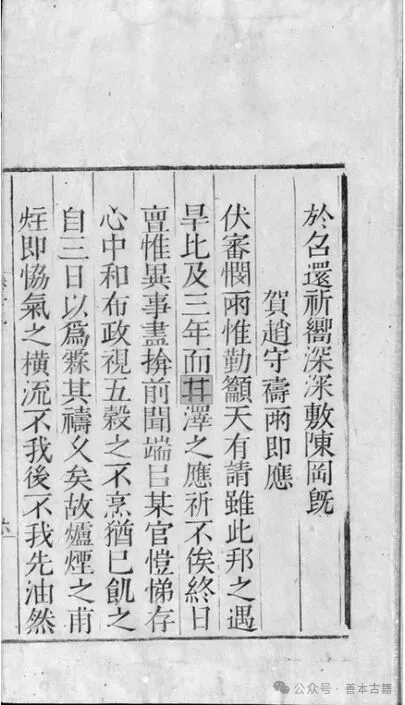 於召還祈嚮深深敷陳罔旣
賀趙守禱雨即應
伏審憫雨惟勤籲天有請雖此邦之遇
旱比及三年而甘澤之應祈不俟終日
亶惟異事盡揜前聞端㠯某官愷悌存
心中和布政視五穀之不烹猶已飢之
自三日以爲霖其禱乆矣故爐煙之甫
炷即恊氣之橫流不我後不我先油然
公众号·善本古籍